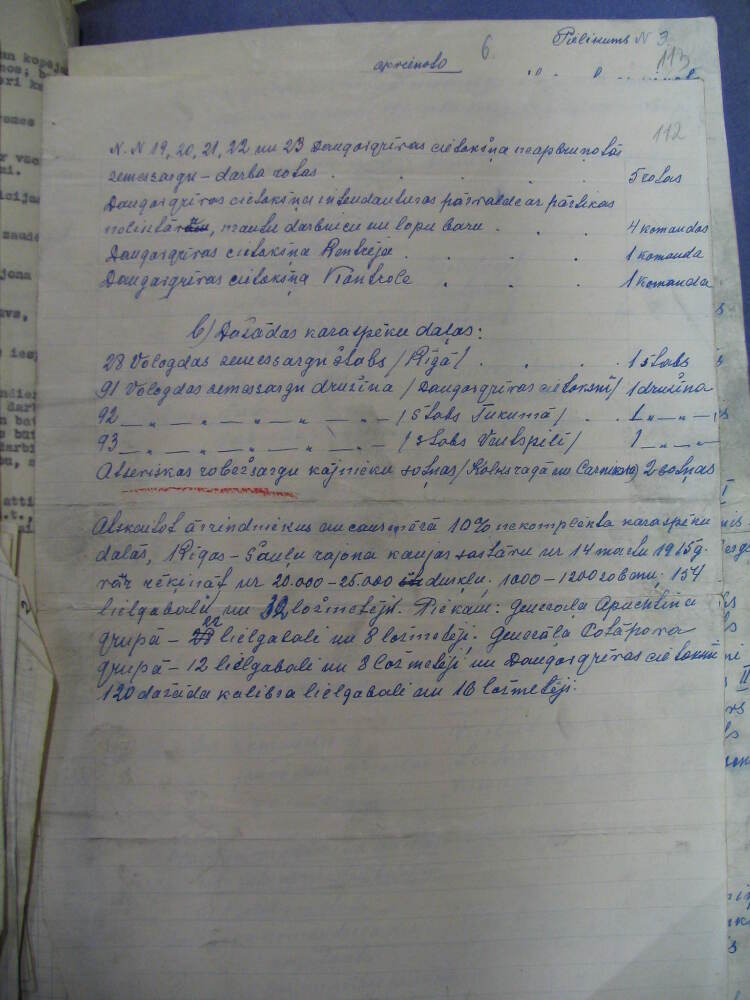 Pielikums N 3.
6.
113
apvienoto
112
N.N 19, 20, 21, 22 un 23 Daugavgrīvas cietokšņa neapbruņotās
zemessargu – darba rotas . . . . . 5 rotas
Daugavgrīvas cietokšņa intendantūras pārvalde ar pārtikas
noliktavām, mantu darbnīcu un lopu baru . . . 4 komandas
Daugavgrīvas cietokšņa Renteja . . . . 1 komanda
Daugavgrīvas cietokšņa Kontrole . . . 1 komanda
b) Dažādas karaspēku daļas:
28 Vologdas zemessargu štabs /Rīgā/ . . . 1 štabs
91 Vologdas zemessargu družina /Daugavgrīvas cietoksnī/ 1 družina
92 — „ — „ — „ — „ — /štabs Tukumā/ . 1 — „ —
93 — „ — „ — „ — „ — /štabs Ventspilī/ 1 — „ —
robežsargu kājnieku sotņas /Kolkasragā un Carnikavā/ 2 sotņas
Atskaitot ārrindniekus un caurmērā 10% nekomplekta karaspēku
daļās, Rīgas – Šauļu rajona kaujas sastāvu uz 14 martu 1915 g.
var rēķināt uz 20.000 – 25.000 durkļu; 1000 – 1200 zobenu; 154
lielgabali un 32 ložmetēji. Piekam: Ģenerāļa Apuchtina
grupā – 22 lielgabali un 8 ložmetēji. Ģenerāļa Potapova
grupā – 12 lielgabali un 8 ložmetēji un Daugavgrīvas cietoksnī
120 dažāda kalibra lielgabali un 16 ložmetēji.